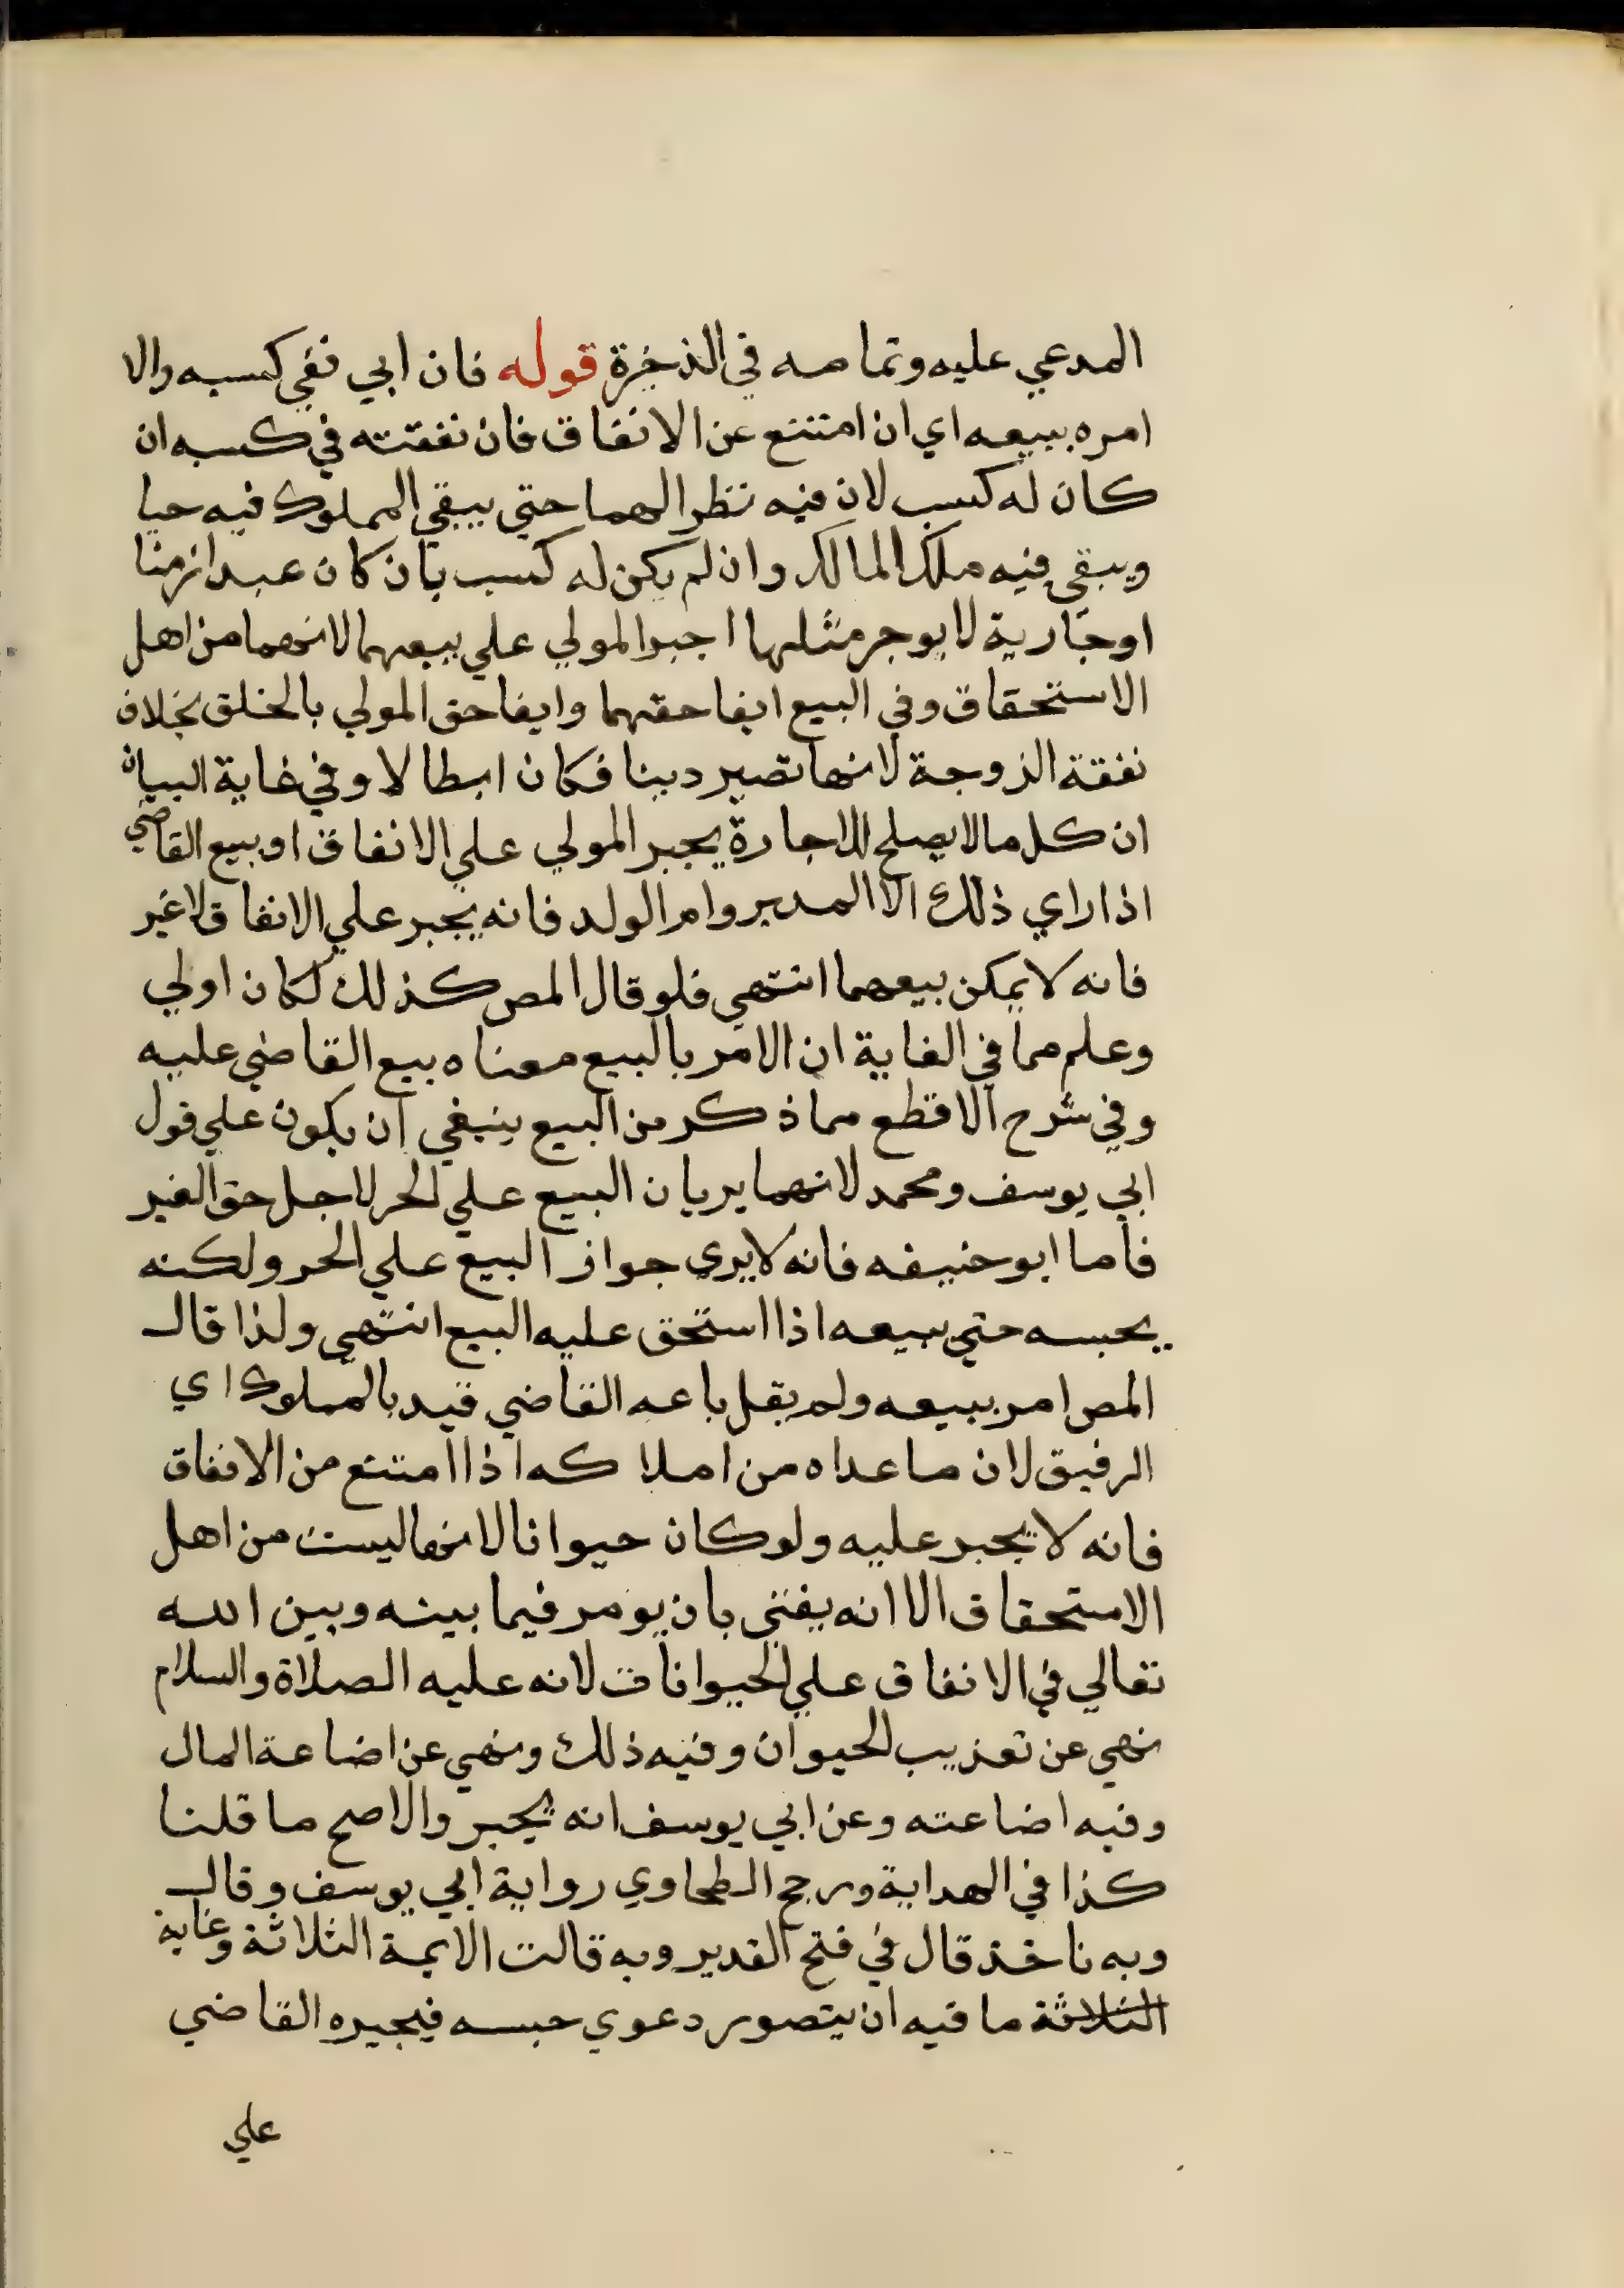 المدعي عليه وتمامه في الذخيرة قوله فان ابي نفي كسبه والا
امره ببيعه اي ان امتنع عن الانفاق فان نفقته في كسبه ان
كان له كسب لان فيه نظرا لهما حتي يبقي المملوك فيه حيا
ويبقي فيه ملك المالك وان لم يكن له كسب بان كان عبدا زمنا
او جارية لا يوجر مثلها اجبر المولي علي بيعهما لانهما من اهل
الاستحقاق وفي البيع ايفا حقهما وايفا حق المولي بالخلق بخلاف
نفقة الزوجة لانها تصير دينا فكان ابطالا وفي غاية البيان
ان كل ما لا يصلح للاجارة يجبر المولي علي الانفاق او بيع القاضي
اذا راي ذلك الا المدبر وام الولد فانه يجبر علي الانفاق لا غير
فانه لا يمكن بيعهما انتهي فلو قال المص كذلك لكان اولي
وعلم مما في الغاية ان الامر بالبيع معناه بيع القاضي عليه
وفي شرح الاقطع مما ذكر من البيع ينبغي ان يكون علي قول
ابي يوسف ومحمد لانهما يريان البيع علي الحر لاجل حق الغير
فاما ابو حنيفه فانه لا يري جواز البيع علي الحر ولكنه
يحبسه حتي يبيعه اذا استحق عليه البيع انتهي ولذا قال
المص امر ببيعه ولم يقل باعه القاضي قيد بالمملوك اي
الرقيق لان ما عداه من املاكه اذا امتنع من الانفاق
فانه لا يجبر عليه ولو كان حيوانا لانها ليست من اهل
الاستحقاق الا انه يفتي بان يومر فيما بينه وبين الله
تعالي في الانفاق علي الحيوانات لانه عليه الصلاة والسلام
نهي عن تعذيب الحيوان وفيه ذلك ونهي عن اضاعة المال
وفيه اضاعته وعن ابي يوسف انه يجبر والاصح ما قلنا
كذا في الهداية ورجح الطحاوي رواية ابي يوسف وقال
وبه ناخذ قال في فتح القدير وبه قالت الايمة الثلاثة وغاية
الثلاثة ما فيه ان يتصور دعوي حبسه فيجبره القاضي
علي